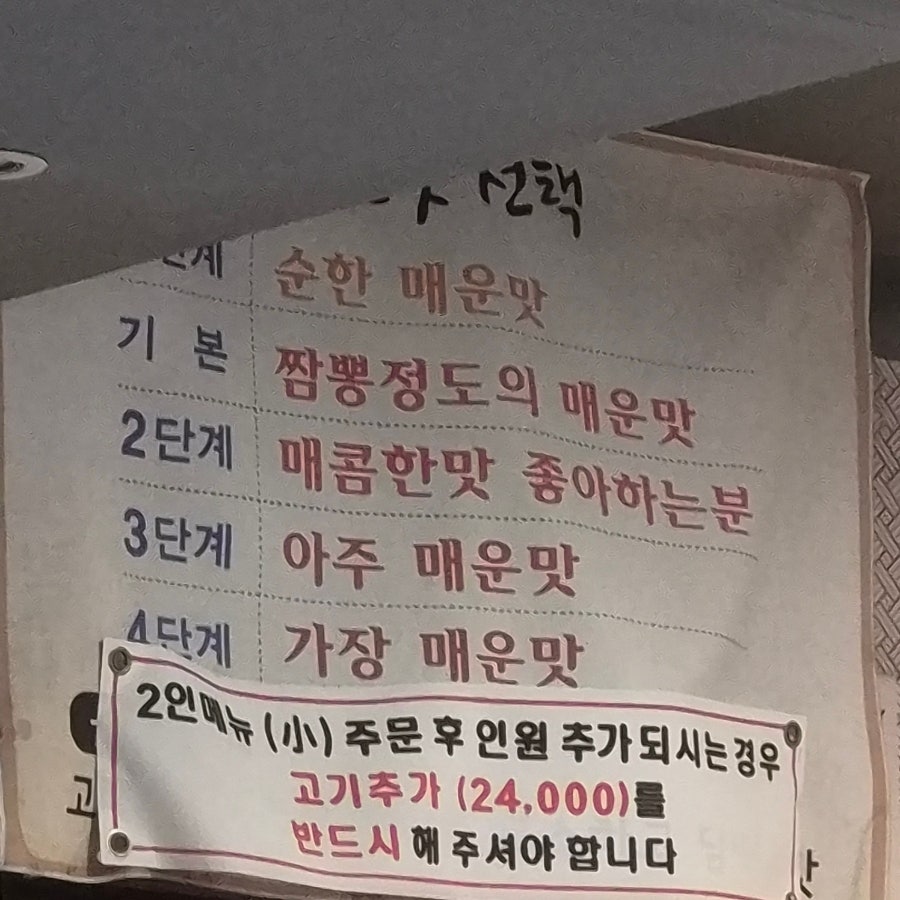 선택
단계 순한 매운맛
기 본 짬뽕정도의 매운맛
2단계 매콤한맛 좋아하는분
3단계 아주 매운맛
4단계 가장 매운맛
2인메뉴 (小) 주문 후 인원 추가 되시는 경우
고기추가 (24,000)를
반드시 해 주셔야 합니다
고